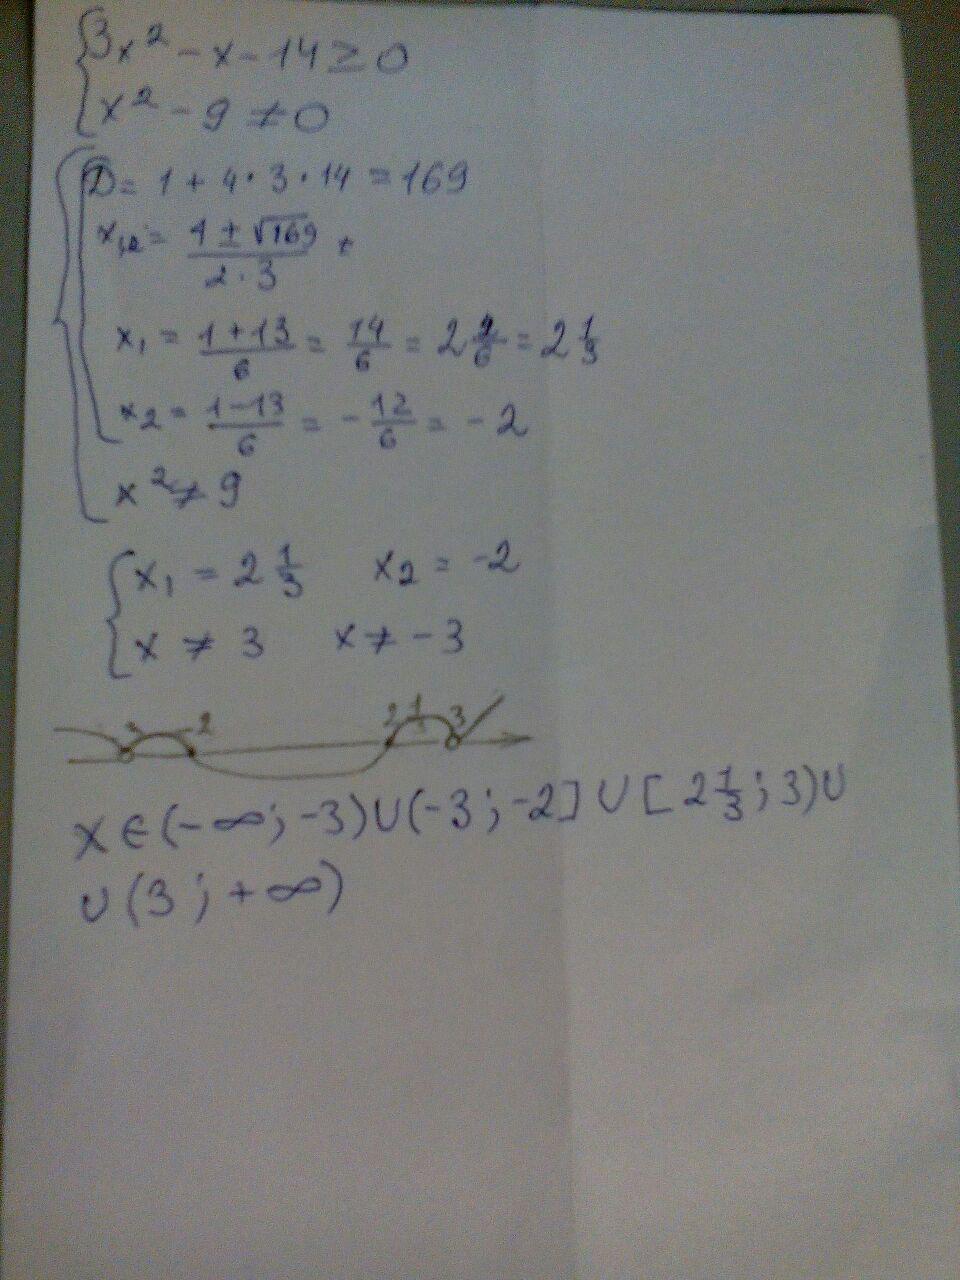 {3x² - x - 14 ≥ 0
x² - 9 ≠ 0
D = 1 + 4 · 3 · 14 = 169
x₁,₂ = (1 ± √169)/(2 · 3)
x₁ = (1 + 13)/6 = 14/6 = 2 2/6 = 2 1/3
x₂ = (1 - 13)/6 = - 12/6 = - 2
x² ≠ 9
{x₁ = 2 1/3 x₂ = -2
x ≠ 3 x ≠ - 3
-2 2 1/3 3
x ∈ (- ∞; -3) ∪ (-3; -2] ∪ [2 1/3; 3) ∪
∪ (3; + ∞)